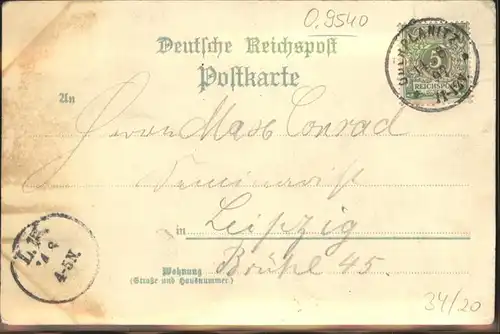 O.9540
Deutsche Reichspost
Postkarte
5
REICHSPOST
OBERPLANITZ
An
Herrn Max Conrad
Seminarist
in Leipzig
Wohnung Brühl 45.
(Straße und Hausnummer)
4-5N.
34/20